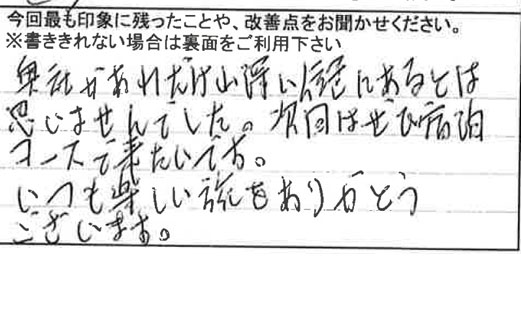 今回最も印象に残ったことや、改善点をお聞かせください。
※書ききれない場合は裏面をご利用下さい
奥社があれだけ山深い にあるとは
思いませんでした。次回はぜひ宿泊
コースで来たいです。
いつも楽しい旅をありがとう
ございます。